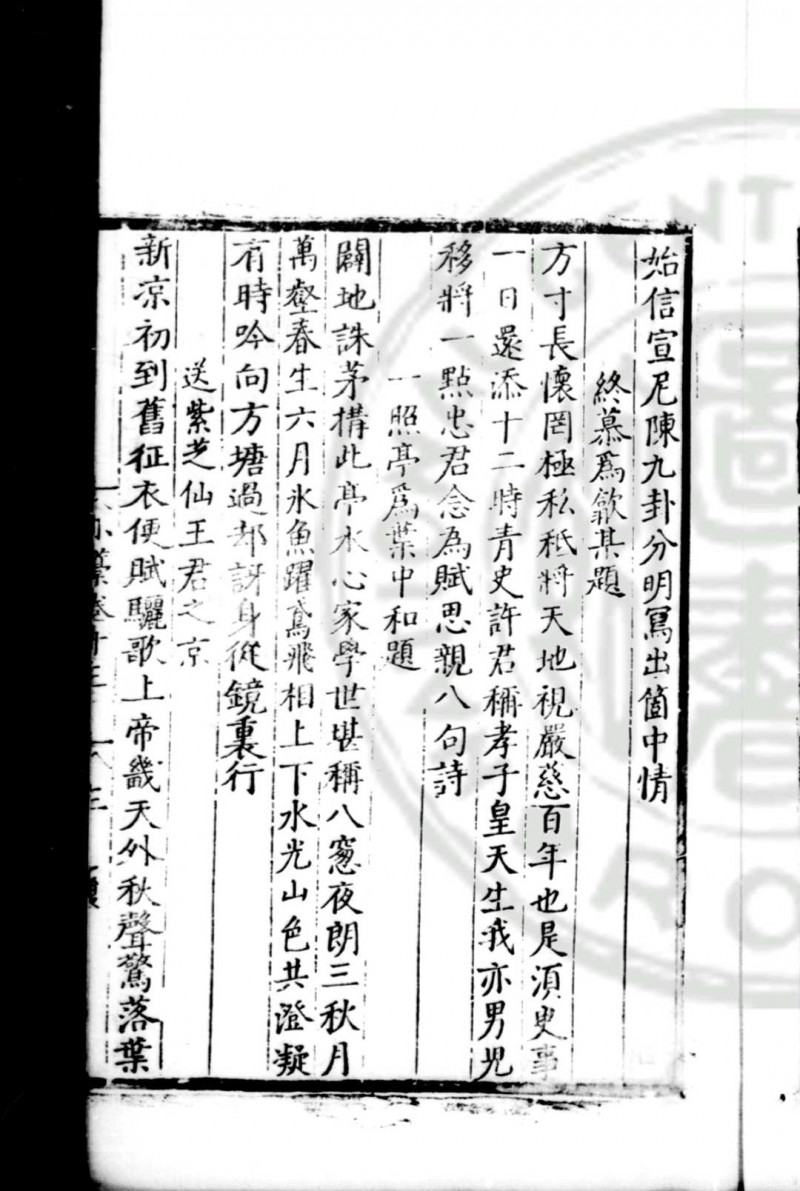 始信宣尼陳九卦分明寫出箇中情
終慕爲歙某題
方寸長懷罔極私秪將天地視嚴慈百年也是湏臾事
一日還添十二時青史許君稱孝子皇天生我亦男児
移將一點忠君念為賦思親八句詩
一照亭爲葉中和題
闢地誅茅構此亭水心家學世堪稱八窻夜朗三秋月
萬壑春生六月氷魚躍鳶飛相上下水光山色共澄凝
有時吟向方塘過却訝身從鏡裏行
送紫芝仙王君之京
新凉初到舊征衣便賦驪歌上帝畿天外秋聲驚落葉